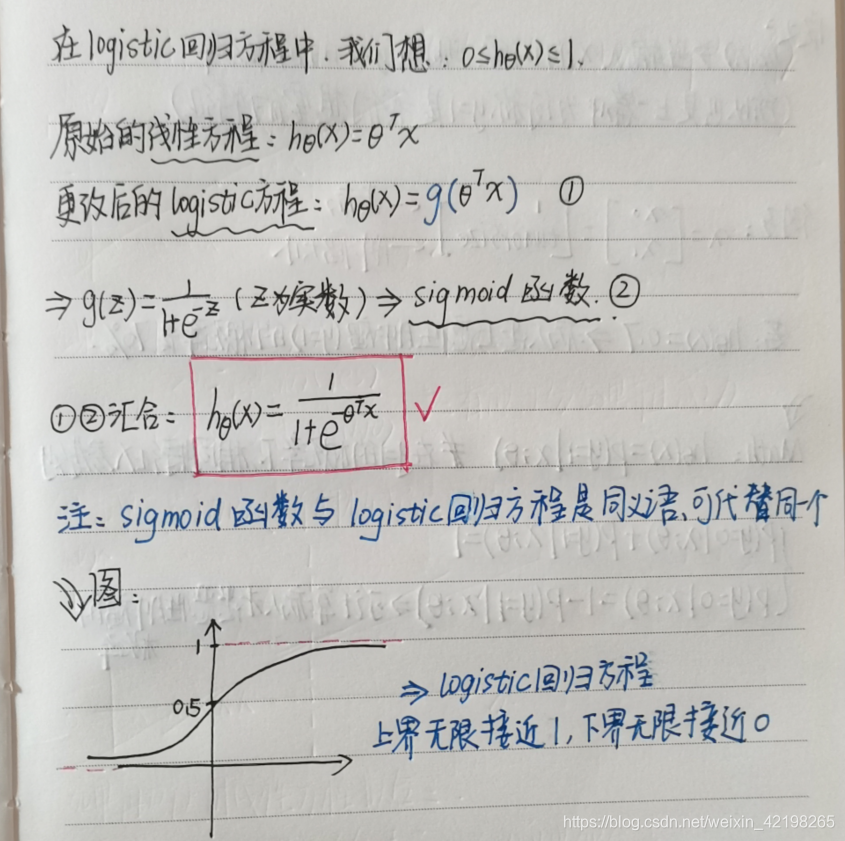 在logistic回归方程中.我们想：0≤hθ(x)≤1.
原始的线性方程：hθ(x)=θᵀx
更改后的logistic方程：hθ(x)=g(θᵀx) ①
⇒ g(z)=1/(1+e^-z) (z为实数) ⇒ sigmoid函数. ②
①②汇合：hθ(x)=1/(1+e^-θᵀx) ✓
注：sigmoid函数与logistic回归方程是同义语、可代替同一个
⇒图：
1
0.5
⇒ logistic回归方程
上界无限接近1,下界无限接近0
https://blog.csdn.net/weixin_42198265